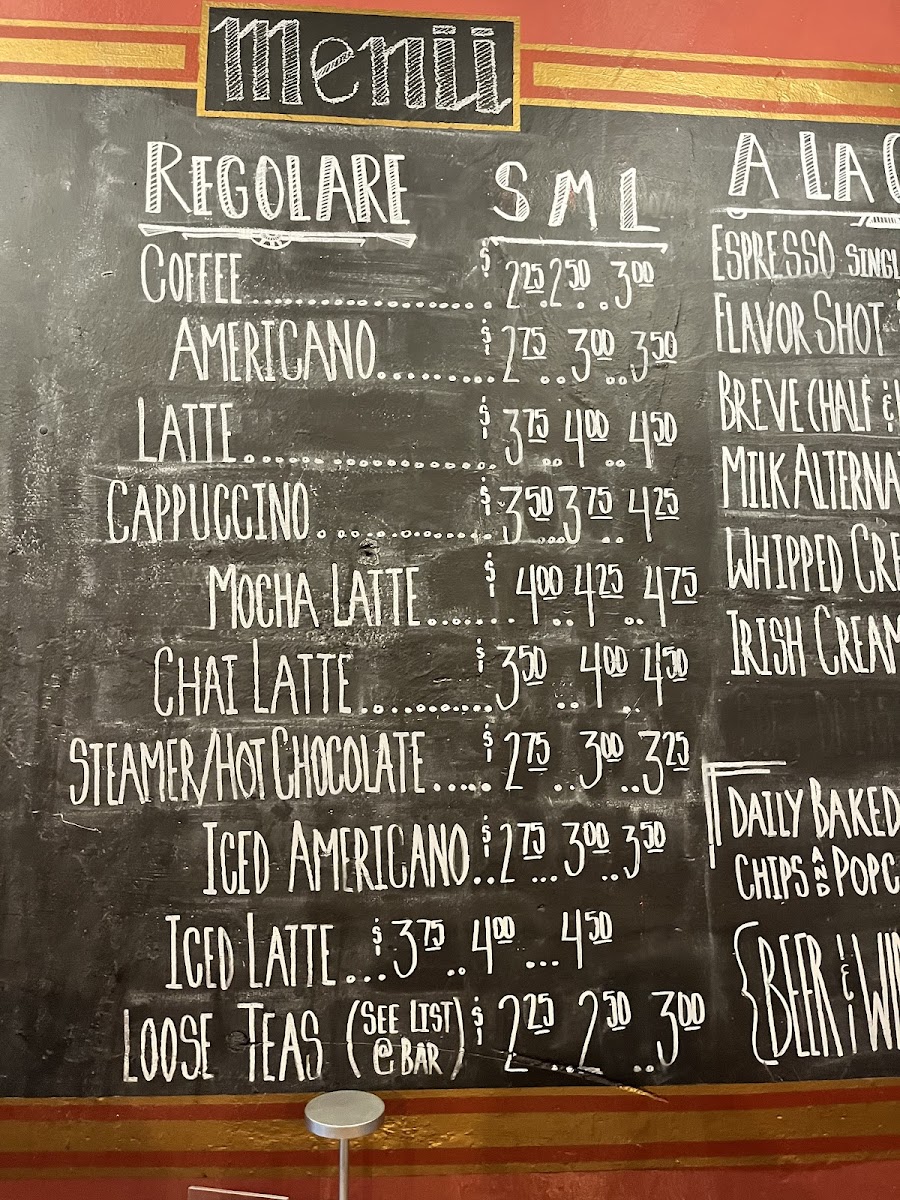 Menü
REGOLARE S M L
COFFEE $ 2.25 2.50 3.00
AMERICANO $ 2.75 3.00 3.50
LATTE $ 3.75 4.00 4.50
CAPPUCCINO $ 3.50 3.75 4.25
MOCHA LATTE $ 4.00 4.25 4.75
CHAI LATTE $ 3.50 4.00 4.50
STEAMER/HOT CHOCOLATE $ 2.75 3.00 3.25
ICED AMERICANO $ 2.75 3.00 3.50
ICED LATTE $ 3.75 4.00 4.50
LOOSE TEAS (SEE LIST @ BAR) $ 2.25 2.50 3.00
A LA
ESPRESSO
FLAVOR SHOT
BREVE (HALF &
MILK
WHIPPED
IRISH CREAM
DAILY BAKED
CHIPS AND
BEER &